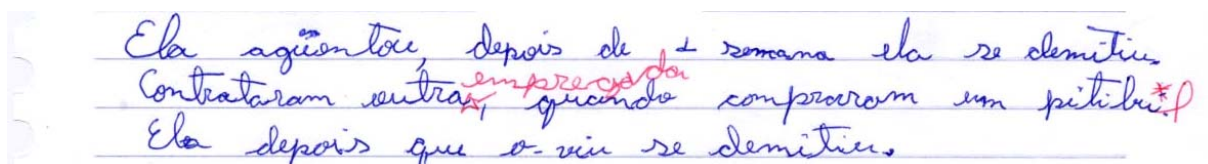 Ela agüentou, depois de 1 semana ela se demitiu.
Contrataram outra, empregada quando compraram um pitibul
Ela depois que o-viu se demitiu.